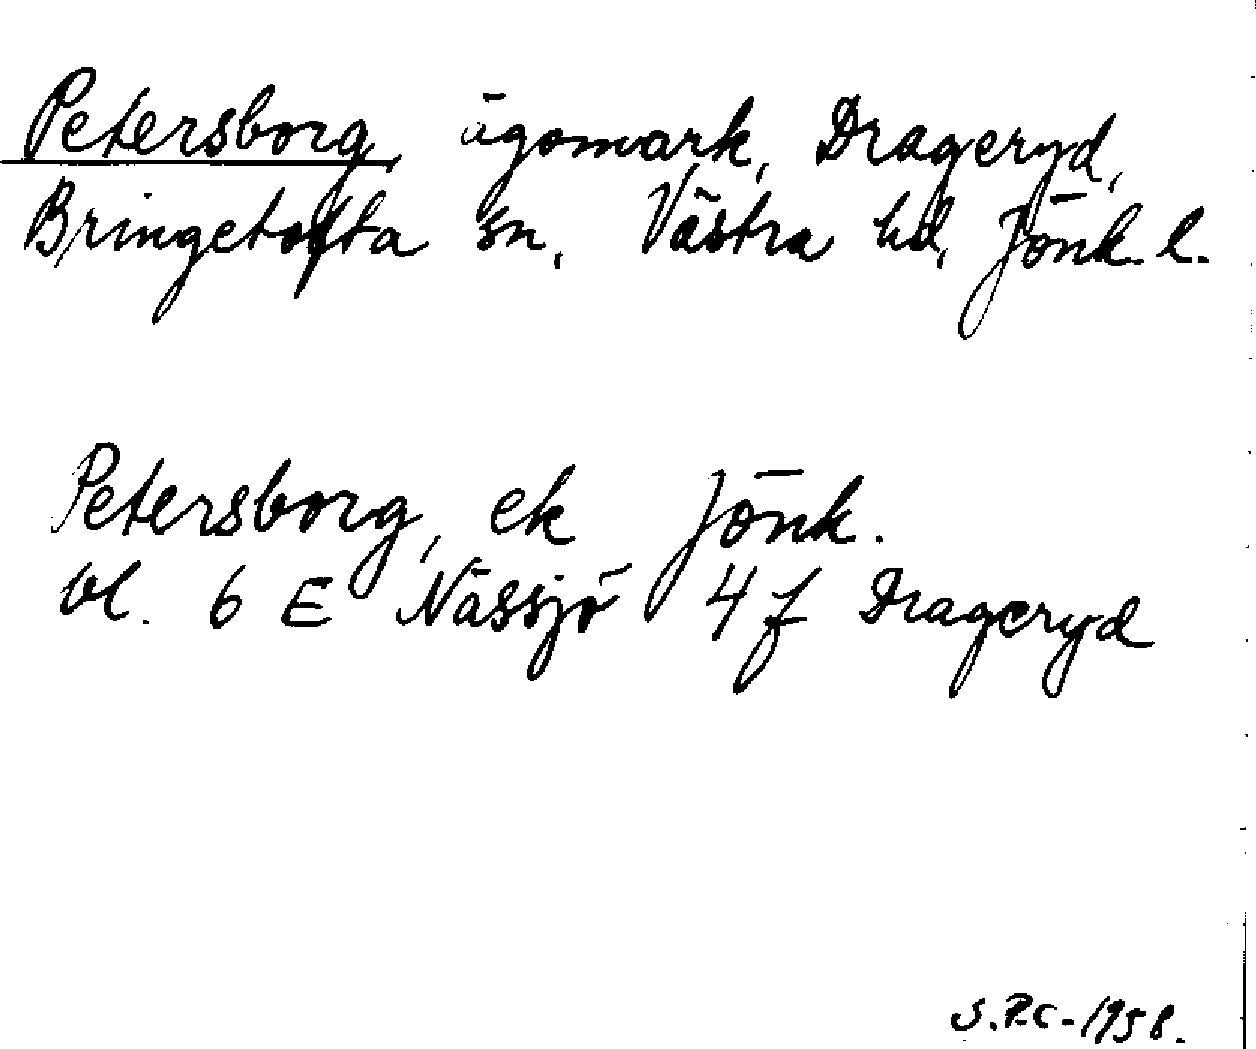 Petersborg, ägomark, Drageryd,
Bringetofta sn, Västra hd, Jönk. l.
Petersborg, ek Jönk.
bl. 6 E Nässjö 4f Drageryd
S.P.C-1958.